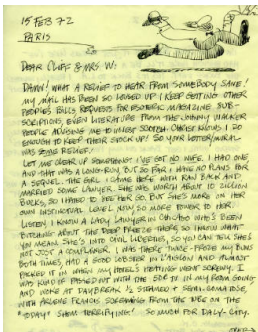 15 FEB 72
PARIS
DEAR CLIFF & MRS. W:
DAMN! WHAT A RELIEF TO HEAR FROM SOMEBODY SANE!
MY MAIL HAS BEEN SO LOUSED UP I KEEP GETTING OTHER
PEOPLE'S BILLS, REQUESTS FOR ESOTERIC MAGAZINE SUB-
SCRIPTIONS, EVEN LITERATURE FROM THE JOHNNY WALKER
PEOPLE ADVISING ME TO INVEST SCOTCH. CHRIST KNOWS I DO
ENOUGH TO KEEP THEIR STOCK UP! SO YOUR LETTER
WAS SOME RELIEF.
LET ME CLEAR UP SOMETHING: I'VE GOT NO WIFE. I HAD ONE,
AND THAT WAS A LONG RUN, BUT SO FAR I HAVE NO PLANS FOR
A SEQUEL. THE GIRL I CAME HERE WITH RAN BACK AND
MARRIED SOME LAWYER. SHE WAS WORTH ABOUT 10 ZILLION
BUCKS, SO I HATED TO SEE HER GO. BUT SHE'S MORE ON HER
OWN INSTINCTUAL LEVEL NOW SO MORE POWER TO HER.
LISTEN, I KNOW A LADY LAWYER IN CHICAGO WHO'S BEEN
BITCHIN' ABOUT THE DEEP FREEZE THERE SO I KNOW WHAT
YOU MEAN. SHE'S INTO CIVIL LIBERTIES, SO YOU CAN TELL SHE'S
NOT JUST A COMPLAINER. I WAS THERE TWICE - FROZE MY BUNS
BOTH TIMES, HAD A GOOD LOBSTER IN L'AIGLON AND ALMOST
PACKED IT IN WHEN MY HOTEL'S HEATING WENT SCREWY. I
WAS KIND OF PISSED OUT WITH THE TV IN MY ROOM GOING
AND WOKE AT DAYBREAK, ½ STEWED + SEMI-COMATOSE,
WITH ARLENE FRANCIS SCREAMING FROM THE TUBE ON THE
"TODAY" SHOW. TERRIFYING! SO MUCH FOR DALY CITY.
OVER